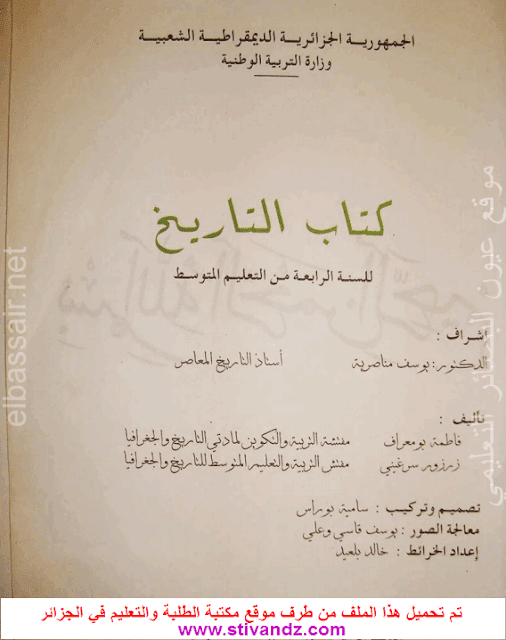 الجمهورية الجزائرية الديمقراطية الشعبية
وزارة التربية الوطنية
كتاب التاريخ
للسنة الرابعة من التعليم المتوسط
إشراف :
الدكتور: يوسف مناصرية أستاذ التاريخ المعاصر
تأليف :
فاطمة بومعراف مفتشة التربية والتكوين لمادتي التاريخ والجغرافيا
زرزور سرغيني مفتش التربية والتعليم المتوسط للتاريخ والجغرافيا
تصميم وتركيب : سامية بوراس
معالجة الصور : يوسف قاسي وعلي
إعداد الخرائط : خالد بلعيد
elbassair.net
موقع عيون البصائر التعليمي
تم تحميل هذا الملف من طرف موقع مكتبة الطلبة والتعليم في الجزائر
www.stivandz.com